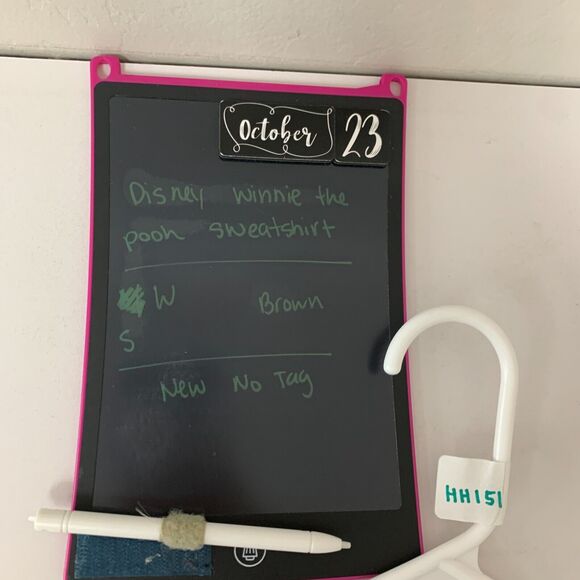 October 23
Disney Winnie the
pooh sweatshirt
W Brown
S
New No Tag
HH151